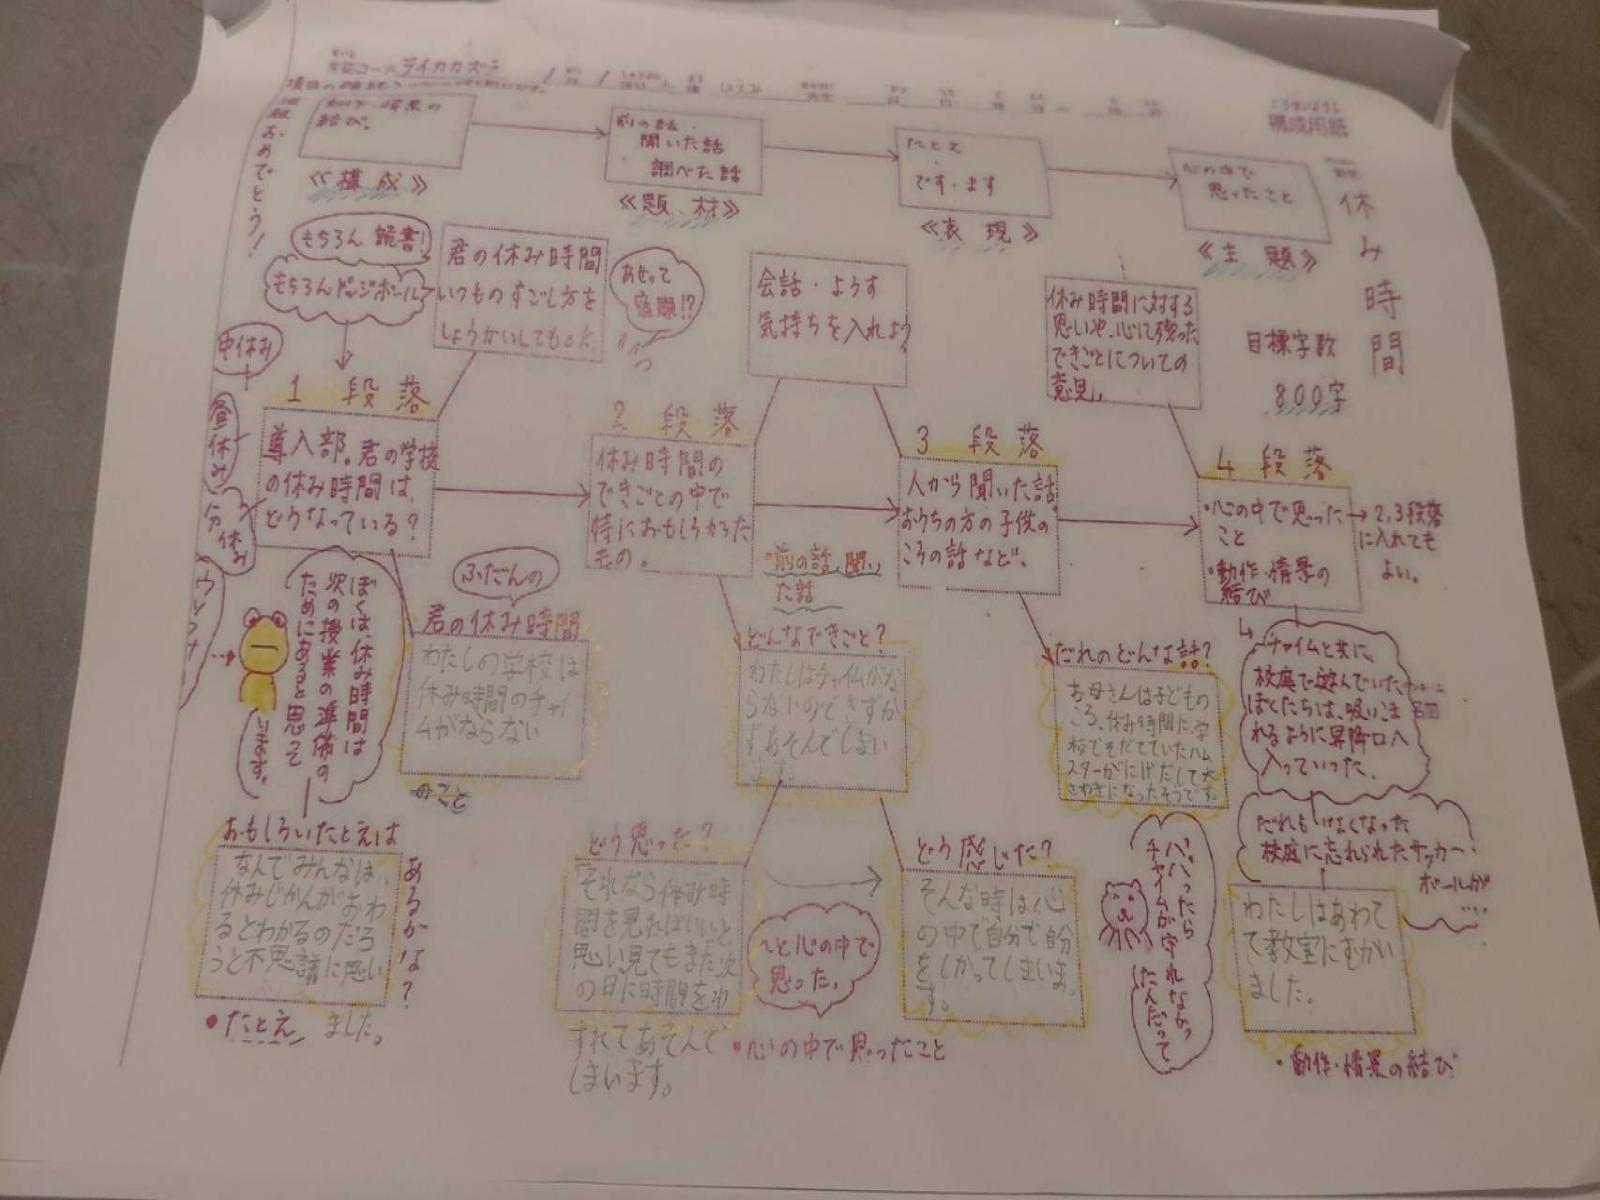 構成用紙
休み時間
目標字数
800字
進級おめでとう!
項目の確認
動作・情景の
結び。
≪構成≫
前の話・
聞いた話
調べた話
≪題材≫
たとえ
です・ます
≪表現≫
心の中で
思ったこと
≪主題≫
もちろん読書!
もちろんドッジボール
中休み
昼休み
君の休み時間
いつものすごし方を
しょうかいしても
あせって
宿題!?
会話・ようす
気持ちを入れよう
休み時間に対する
思いや、心に残った
できごとについての
意見。
1段落
導入部。君の学校
の休み時間は、
どうなっている?
2段落
休み時間の
できごとの中で
特におもしろかった
もの。
3段落
人から聞いた話。
おうちの方の子供の
ころの話など。
4段落
・心の中で思った
こと
・動作・情景の
結び
→2,3段落
に入れても
よい。
・前の話、聞い
た話
ぼくは、休み時間は
次の授業の準備の
ためにあると思って
います。
ふだんの
君の休み時間
わたしの学校は
休み時間のチャイ
ムがならない
のこと
どんなできごと?
わたしはチャイムがな
らないのできずか
ずあそんでしまい
ます。
だれのどんな話?
お母さんは子どもの
ころ、休み時間に、学
校でそだてていたハム
スターがにげだして大
さわぎになったそうです。
チャイムと共に、
校庭で遊んでいた
ぼくたちは、吸いこま
れるように昇降口へ
入っていった。
だれもいなくなった
校庭に忘れられたサッカー
ボールが
…
おもしろいたとえは
あるかな?
なんでみんなは、
休みじかんがおわ
るとわかるのだろ
うと不思議に思い
ました。
・たとえ
どう思った?
それなら休み時
間を見ればいいと
思い見てもまた次
の日に時間をわ
すれてあそんで
しまいます。
〜と心の中で
思った。
・心の中で思ったこと
どう感じた?
そんな時は心
の中で自分で自分
をしかってしまいま
す。
わたしはあわて
て教室にむかい
ました。
・動作・情景の結び